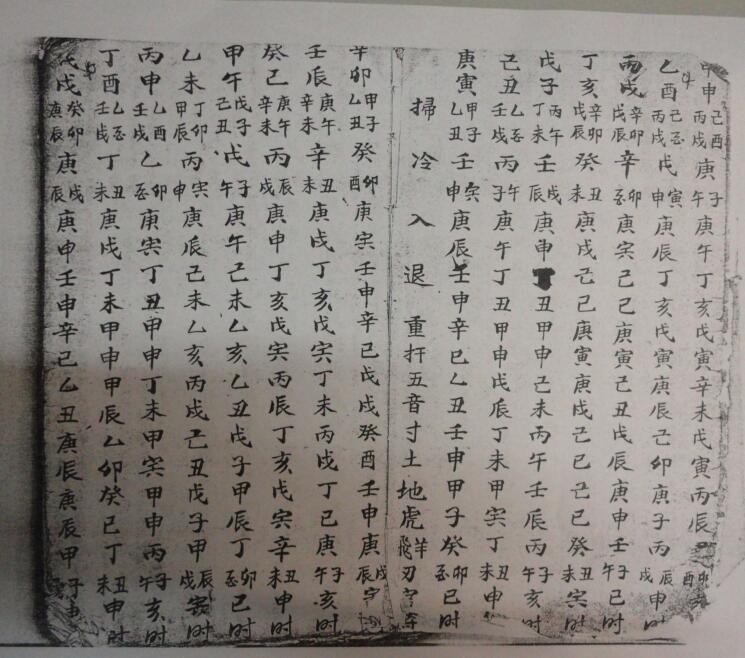 甲申己酉丙戌庚子午庚午丁亥戊寅辛未戊寅丙辰己卯酉
乙酉己酉丙戌戊寅申庚辰丁亥戊寅庚辰己卯庚子丙辰戌申时
丙戌辛卯戊辰辛卯酉庚寅己巳庚寅己丑戊辰庚申壬子午巳时
丁亥辛卯戊辰癸丑未庚戌己巳庚寅庚戌己巳己巳癸丑未寅时
戊子丙午丁未壬戌辰庚申丁丑甲申己未丙午壬辰丙子午亥时
己丑乙酉壬戌丙午子庚午丁丑甲申戊辰丁未甲寅丁丑未申时
庚寅甲子乙丑壬寅申庚辰壬申辛巳乙丑壬申甲子癸卯酉巳时
掃冷入退重扦五音寸土地虎羊飛刃
辛卯甲子乙丑癸卯酉庚寅壬申辛巳戊戌癸酉壬申庚戌辰
壬辰庚午辛未辛丑未庚戌丁亥戊寅丁未丙戌丁巳庚子午亥时
癸巳庚午辛未丙辰戌庚申丁亥戊寅丙辰丁亥戊寅辛丑未申时
甲午戊子己丑戊子午庚午己未乙亥乙丑戊子甲辰丁卯酉巳时
乙未丁卯甲辰丙寅申庚辰己未乙亥丙戌己丑戊子甲辰戌寅时
丙申乙酉壬戌乙卯酉庚寅丁丑甲申丁未甲寅甲申丙子午亥时
丁酉乙酉壬戌丁丑未庚戌丁未甲申甲辰乙卯癸巳丁丑未申时
戊戌癸卯庚辰庚戌辰庚申壬申辛巳乙丑庚辰庚辰甲子时